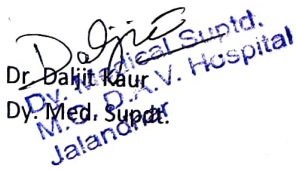 Daljit
Dr. Daljit Kaur
Dy. Med. Supdt.
Dy. Medical Suptd.
M.G. D.A.V. Hospital
Jalandhar